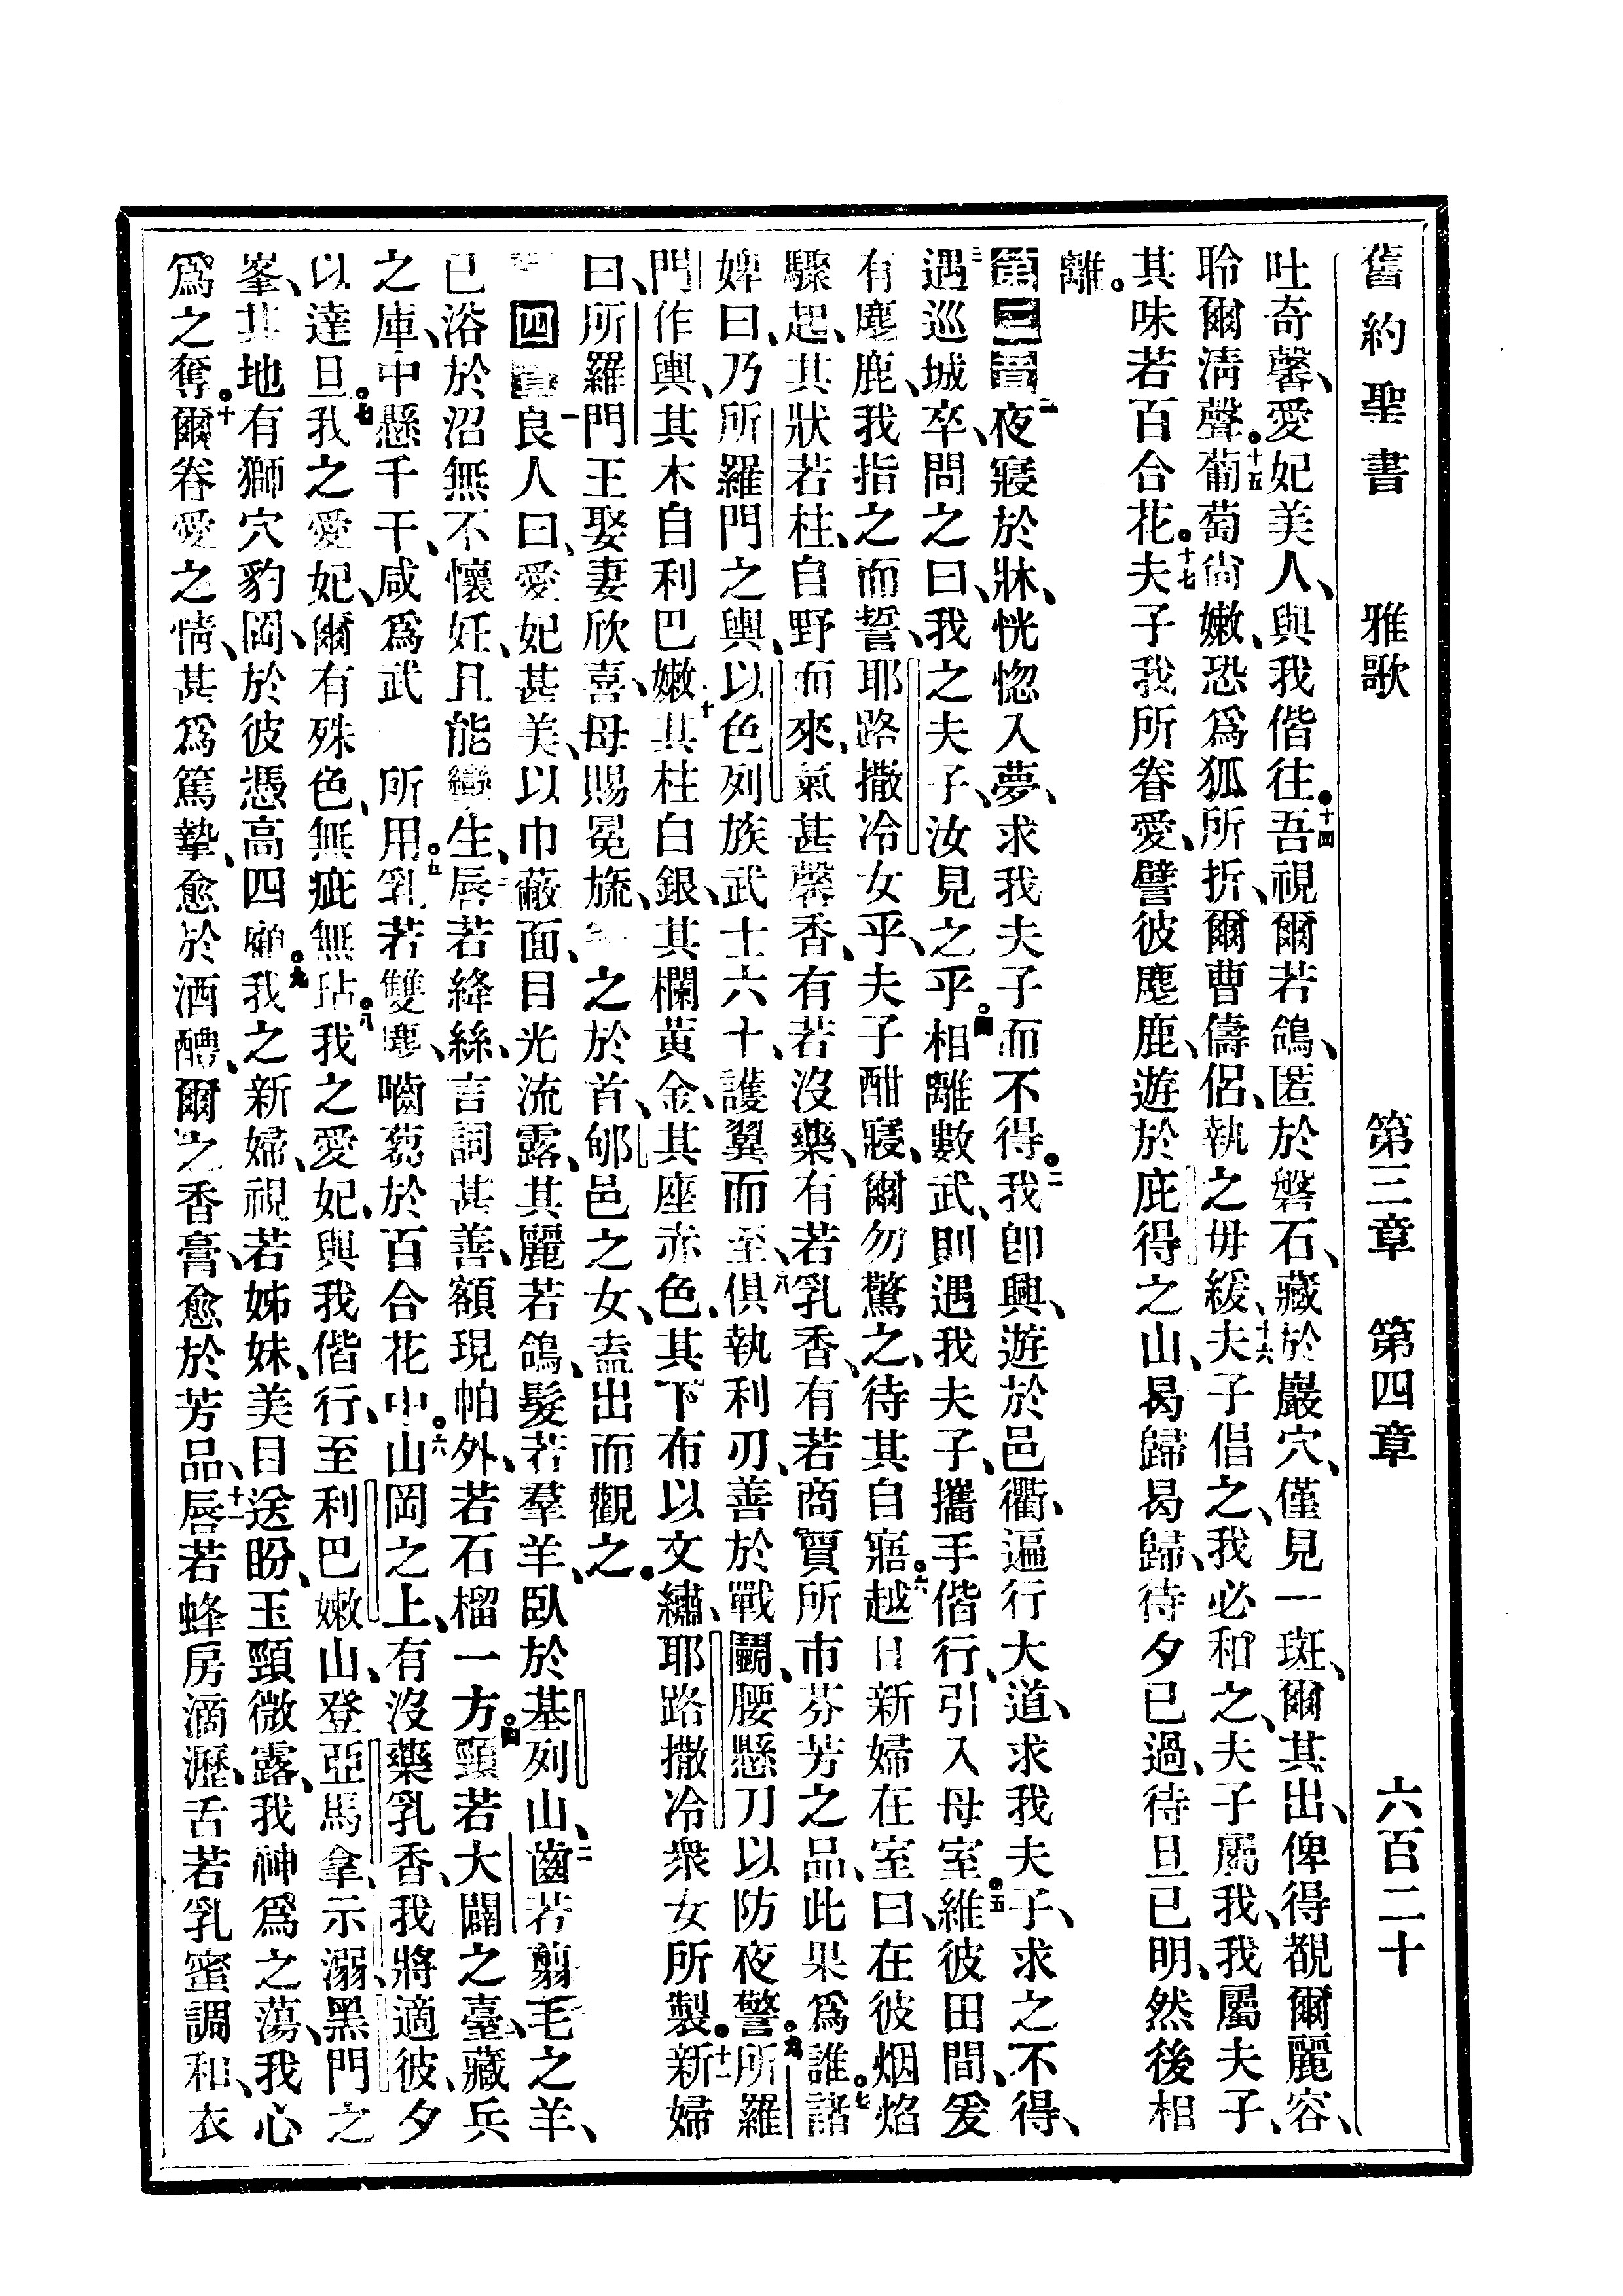 舊約聖書 雅歌 第三章 第四章 六百二十
吐奇馨、愛妃美人、與我偕往。十四吾視爾若鴿、匿於磐石、藏於巖穴、僅見一斑、爾其出、俾得覩爾麗容、
聆爾淸聲。十五葡萄尙嫩、恐爲狐所折、爾曹儔侶、執之毋緩、十六夫子倡之、我必和之、夫子屬我、我屬夫子、
其味若百合花。十七夫子我所眷愛、譬彼麈鹿、遊於庇得之山、曷歸曷歸、待夕已過、待旦已明、然後相
離。
第三章一夜寢於牀、恍惚入夢、求我夫子而不得。二我卽興、遊於邑衢、逼行大道、求我夫子、求之不得、
三遇巡城卒、問之曰、我之夫子、汝見之乎。四相離數武、則遇我夫子、攜手偕行、引入母室。五維彼田間、爰
有麈鹿、我指之而誓、耶路撒冷女乎、夫子酣寢、爾勿驚之、待其自寤。六越日新婦在室曰、在彼烟焰
驟起、其狀若柱、自野而來、氣甚馨香、有若沒藥、有若乳香、有若商賈所市芬芳之品、此果爲誰。七諸
婢曰、乃所羅門之輿、以色列族武士六十、護翼而至、八俱執利刃、善於戰鬭、腰懸刀以防夜警。九所羅
門作輿、其木自利巴嫩、十其柱白銀、其欄黃金、其座赤色、其下布以文繡、耶路撒冷衆女所製。十一新婦
曰、所羅門王娶妻欣喜、母賜冕旒、之於首、郇邑之女、盍出而觀之。
四章一良人曰、愛妃甚美、以巾蔽面、目光流露、其麗若鴿、髮若羣羊、臥於基列山、二齒若翦毛之羊、
已浴於沼、無不懷妊、且能孿生、三唇若絳絲、言詞甚善、額現帕外、若石榴一方。四頸若大闢之臺、藏兵
之庫、中懸千干、咸爲武所用。五乳若雙麈、嚙芻於百合花中。六山岡之上、有沒藥乳香、我將適彼、夕
以達旦。七我之愛妃、爾有殊色、無疵無玷。八我之愛妃、與我偕行、至利巴嫩山、登亞馬拿、示溺、黑門之
峯、其地有獅穴豹岡、於彼憑高四顧。九我之新婦、視若姊妹、美目送盼、玉頸微露、我神爲之蕩、我心
爲之奪。十爾眷愛之情、甚爲篤摯、愈於酒醴、爾之香膏、愈於芳品、十一唇若蜂房滴瀝、舌若乳蜜調和、衣